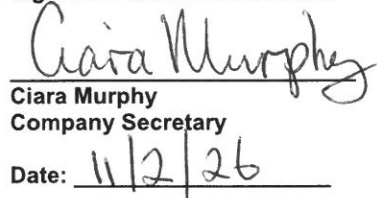 Ciara Murphy
Ciara Murphy
Company Secretary
Date: 11/2/26